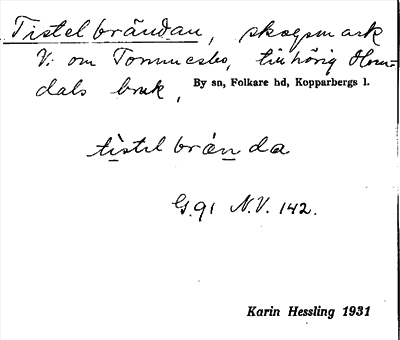 Tistelbrändan, skogsmark
V. om Tommesbo, tillhörig Horn=
dals bruk, By sn, Folkare hd, Kopparbergs l.
tistelbrända
G.91 N.V. 142.
Karin Hessling 1931